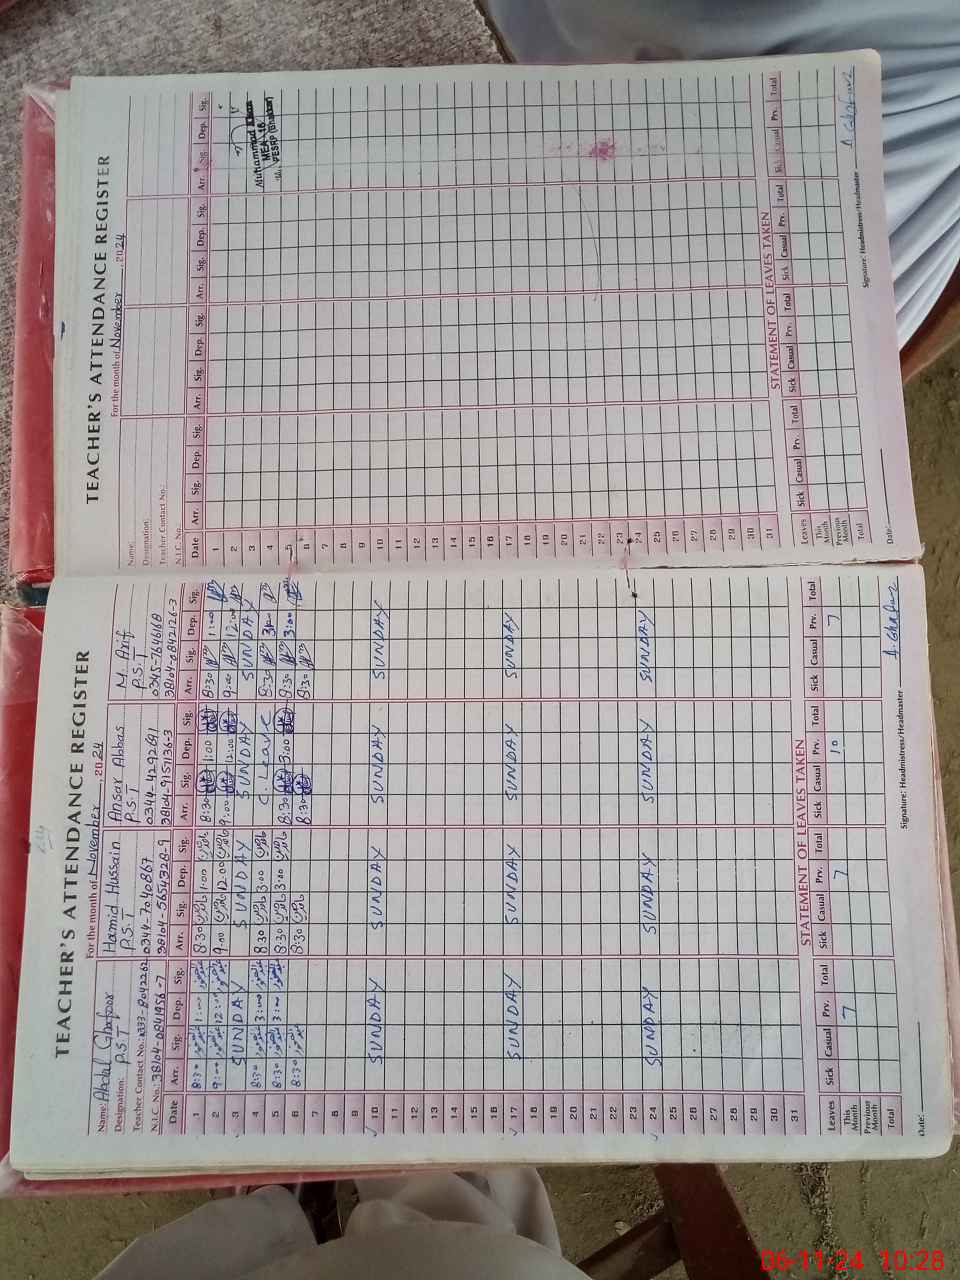 TEACHER'S ATTENDANCE REGISTER
For the month of November, 2024
Name: Abdul Ghafoor Hamid Hussain Ansar Abbas M. Arif
Designation: P.S.T P.S.T P.S.T P.S.T
Teacher Contact No.: 0333-8042262 0344-7040867 0344-4292691 0345-7646168
N.I.C. No.: 38104-0841956-7 38104-5654328-9 38104-9157136-3 38104-0842126-3
Date Arr. Sig. Dep. Sig. Arr. Sig. Dep. Sig. Arr. Sig. Dep. Sig. Arr. Sig. Dep. Sig.
1 8:30 1:00 8:30 1:00 8:30 1:00 8:30 1:00
2 9:00 12:00 9:00 12:00 9:00 12:00 9:00 12:00
3 SUNDAY SUNDAY SUNDAY SUNDAY
4 8:30 3:00 8:30 3:00 C. Leave 8:30
5 8:30 3:00 8:30 3:00 8:30 3:00 8:30 3:00
6 8:30 8:30 8:30 8:30
7
8
9
10 SUNDAY SUNDAY SUNDAY SUNDAY
11
12
13
14
15
16
17 SUNDAY SUNDAY SUNDAY SUNDAY
18
19
20
21
22
23
24 SUNDAY SUNDAY SUNDAY SUNDAY
25
26
27
28
29
30
31
STATEMENT OF LEAVES TAKEN
Leaves Sick Casual Prv. Total Sick Casual Prv. Total Sick Casual Prv. Total Sick Casual Prv. Total
This Month 7 7 10 7
Previous Month
Total
A. Ghafoor
Date: Signature: Headmistress/Headmaster
TEACHER'S ATTENDANCE REGISTER
For the month of November, 2024
Name:
Designation:
Teacher Contact No.:
N.I.C. No.:
Date Arr. Sig. Dep. Sig. Arr. Sig. Dep. Sig. Arr. Sig. Dep. Sig. Arr. Sig. Dep. Sig.
1
2
3
4
5
6
7
8
9
10
11
12
13
14
15
16
17
18
19
20
21
22
23
24
25
26
27
28
29
30
31
Muhammad
MEA
STATEMENT OF LEAVES TAKEN
Leaves Sick Casual Prv. Total Sick Casual Prv. Total Sick Casual Prv. Total Sick Casual Prv. Total
This Month
Previous Month
Total
A. Ghafoor
Date: Signature: Headmistress/Headmaster
06-11-24 10:28